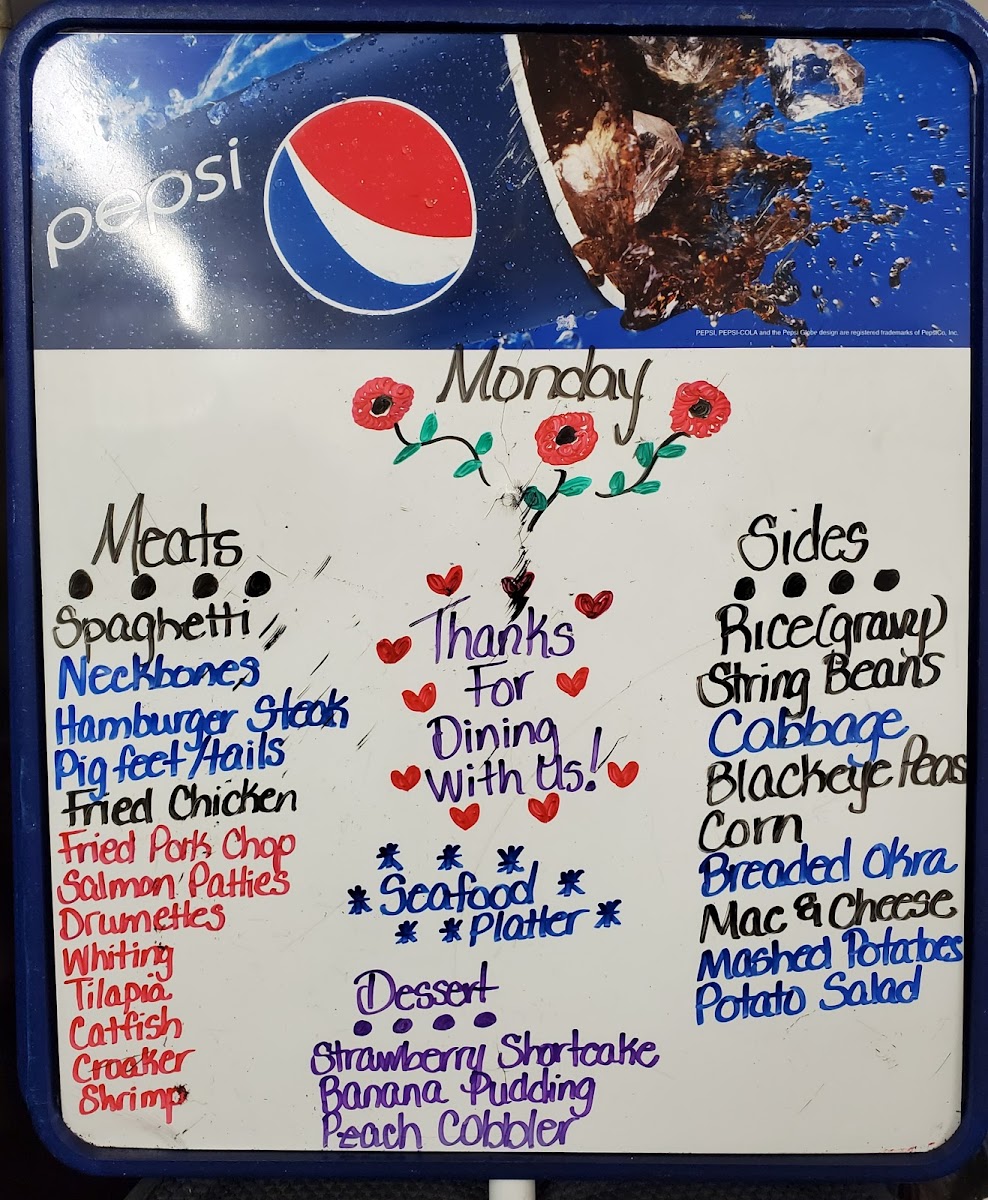 pepsi
PEPSI, PEPSI-COLA and the Pepsi Globe design are registered trademarks of PepsiCo, Inc.
Monday
Meats
Spaghetti
Neckbones
Hamburger Steak
Pig feet/tails
Fried Chicken
Fried Pork Chop
Salmon Patties
Drumettes
Whiting
Tilapia
Catfish
Croaker
Shrimp
Thanks
For
Dining
With Us!
Seafood
Platter
Dessert
Strawberry Shortcake
Banana Pudding
Peach Cobbler
Sides
Rice(gravy)
String Beans
Cabbage
Blackeye Peas
Corn
Breaded Okra
Mac & Cheese
Mashed Potatoes
Potato Salad